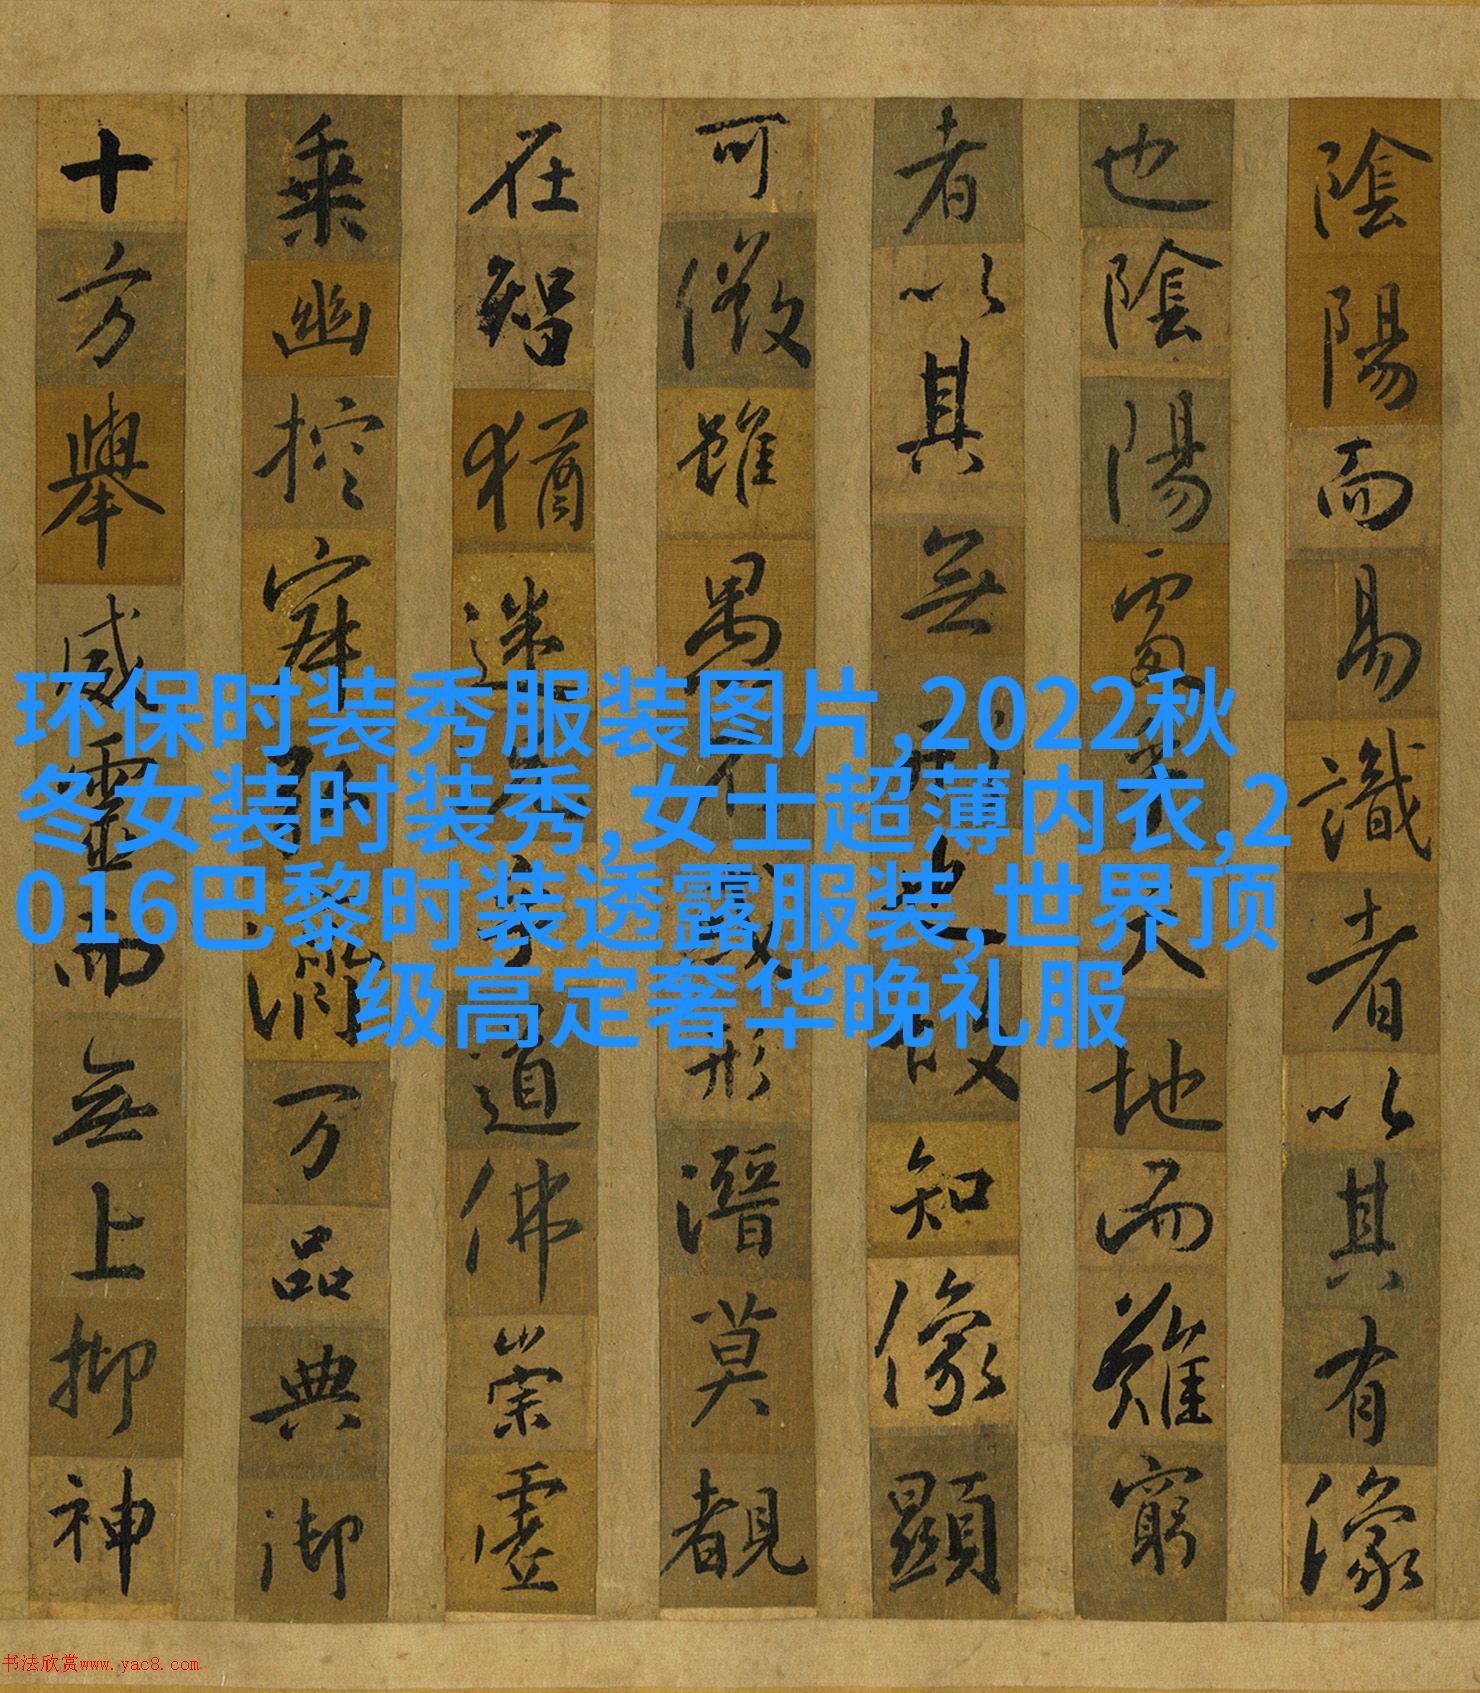 陰陽而易識者以其有像
也陰陽處乎天地而難窮
者以其無形也故知像顯
可徵雖愚不惑形潛莫覩
在智猶迷況乎道佛崇虛
乘幽控寂弘濟万品典御
十方舉威靈而無上抑神
环保时装秀服装图片,2022秋
冬女装时装秀,女士超薄内衣,2
016巴黎时装透露服装,世界顶
级高定奢华晚礼服
书法欣赏www.yac8.com